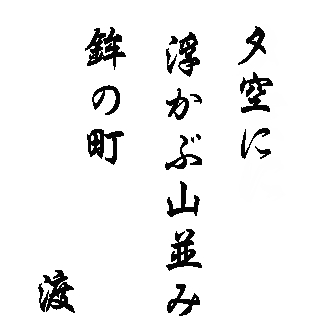 夕空に
浮かぶ山並み
鉾の町
渡